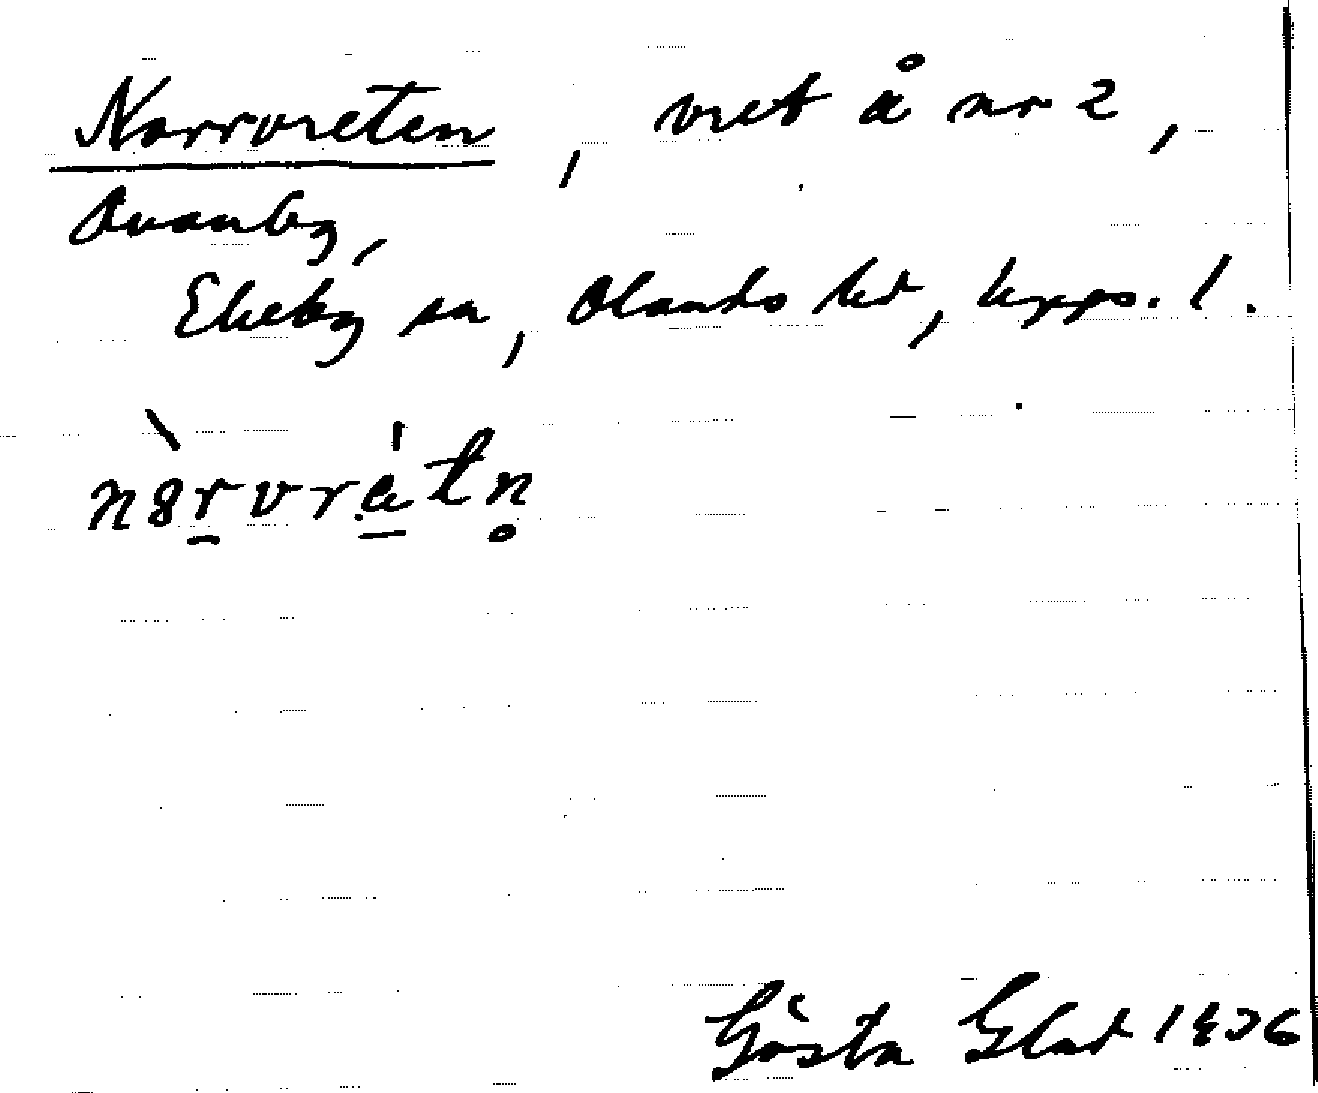 Norrvreten, vret å nr 2,
Ovanby,
Ekeby sn, Olands hd, Upps. l.
Gösta Glad 1936